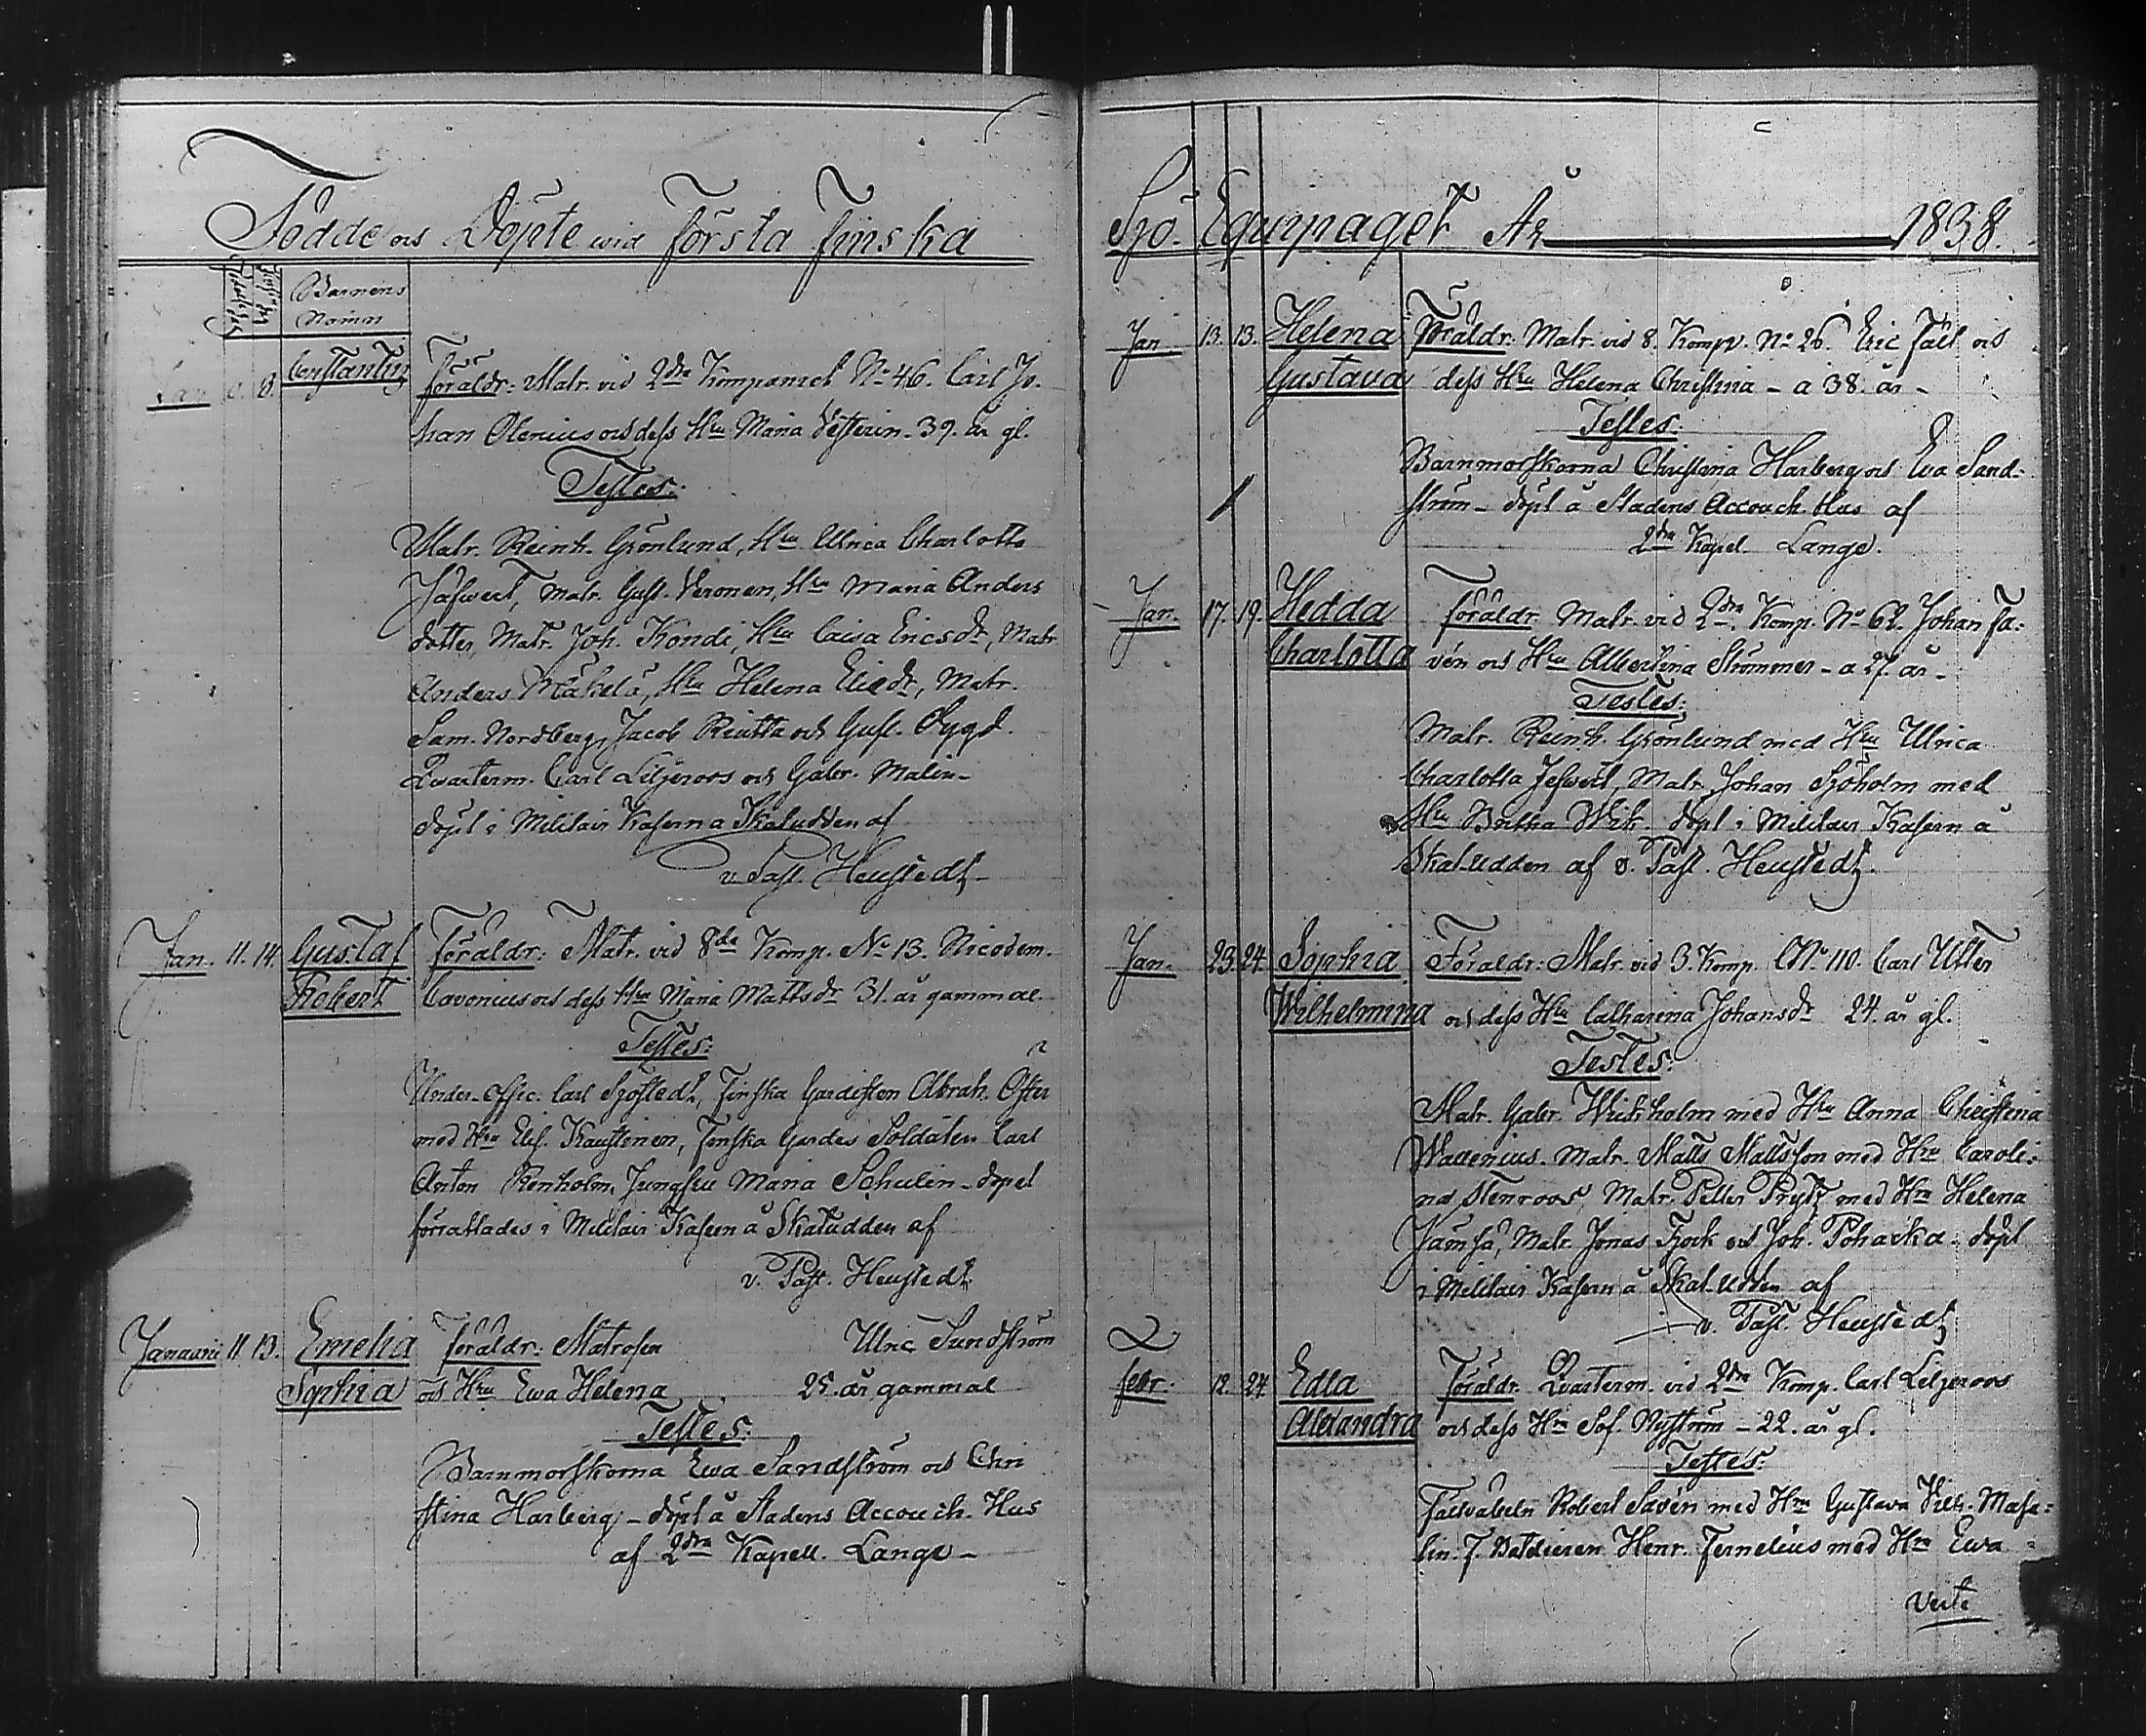 Födde och Döpte wid Första Finska
Barnens
Namn
Jan 8. Constantin Föräldr: Matr. vid 2dra Kompaniet No 46. Carl Jo-
han Olenius och dess Hu Maria Vesterin. 39. år gl.
Testes:
Matr. Reinh. Grönlund, Hu Ulrica Charlotta
Matr. Gust. Veronen, Hu Maria Anders
dotter, Matr. Joh. Kondi, Hu Caisa Ericsdr, Matr.
Anders Mäkelä, Hu Helena Eliedr, Matr.
Sam. Nordberg, Jacob Riutta och Gust. Dygd.
Qvarterm. Carl Liljeroos och Gabr. Malin-
döpt i Militair Kasern a Skatudden af
v. Past. Heustedt-
Jan. 11. 14. Gustaf Föräldr: Matr. vid 8de Komp. No 13. Nicodem.
Robert Cavonius och dess Hu Maria Mattsdr 31. år gammal.
Testes:
Under-offic: Carl Sjöstedt, Finska Gardisten Abrah. Öster
med Hu Elis. Kaustinen, Finska Gardes Soldaten Carl
Anton Renholm, Jungfru Maria Schulin - dopet
förrattades i Militair Kasern å Skatudden af
v. Past. Heustedt.
Januarii 11. 13. Emelia Föräldr: Matrosen Ulric Sundström
Sophia och Hu Ewa Helena 25. år gammal
Testes:
Barnmorskorna Ewa Sandström och Chri
stina Harberg - döpt å Stadens Accouch. Hus
af 2dra Kapell. Lange-
Sjö-Equipaget År 1838.
Jan 13. 13. Helena Föräldr: Matr. vid 8. Komp. No 26. Eric Fält och
Gustava dess Hu Helena Christina - a 38. år-
Testes:
Barnmorskorna Christina Harberg och Eva Sand-
ström - döpt å Stadens Accouch. Hus af
2dra Kapel. Lange.
Jan. 17. 19. Hedda Föräldr. Matr. vid 2dra Komp. No 62. Johan Fa-
Charlotta vén och Hu Albertina Strömmer - a 27. år-
Testes:
Matr. Reinh. Grönlund med Hu Ulrica
Charlotta Matr. Johan Sjöholm med
Hu Britha Wik. döpt i Militair Kasern å
Skat-Udden af v. Past. Heustedt.
Jan. 23. 24. Sophia Föräldr: Matr. vid 3. Komp. No 110. Carl Utter
Wilhelmina och dess Hu Catharina Johansdr 24. år gl.
Testes:
Matr. Gabr. Wickholm med Hu Anna Christina
Wallenius. Matr. Matts Mattsson med Hu Caroli-
na Stenroos, Matr. Petter Prytz med Hu Helena
Jämsä, Matr. Jonas och Joh. döpt
i Militair Kasern å Skat-Udden af
v. Past. Heustedt
Febr. 12. 24. Edla Föräldr. Qvarterm. vid 2dra Komp. Carl Liljeroos
Alexandra och dess Hu Sof. Nyström - 22. år gl.
Testes:
Fältväbeln Robert Savén med Hu Gustava Vilh. Masa-
lin. Henr. Fernelius med Hu Ewa
Verte